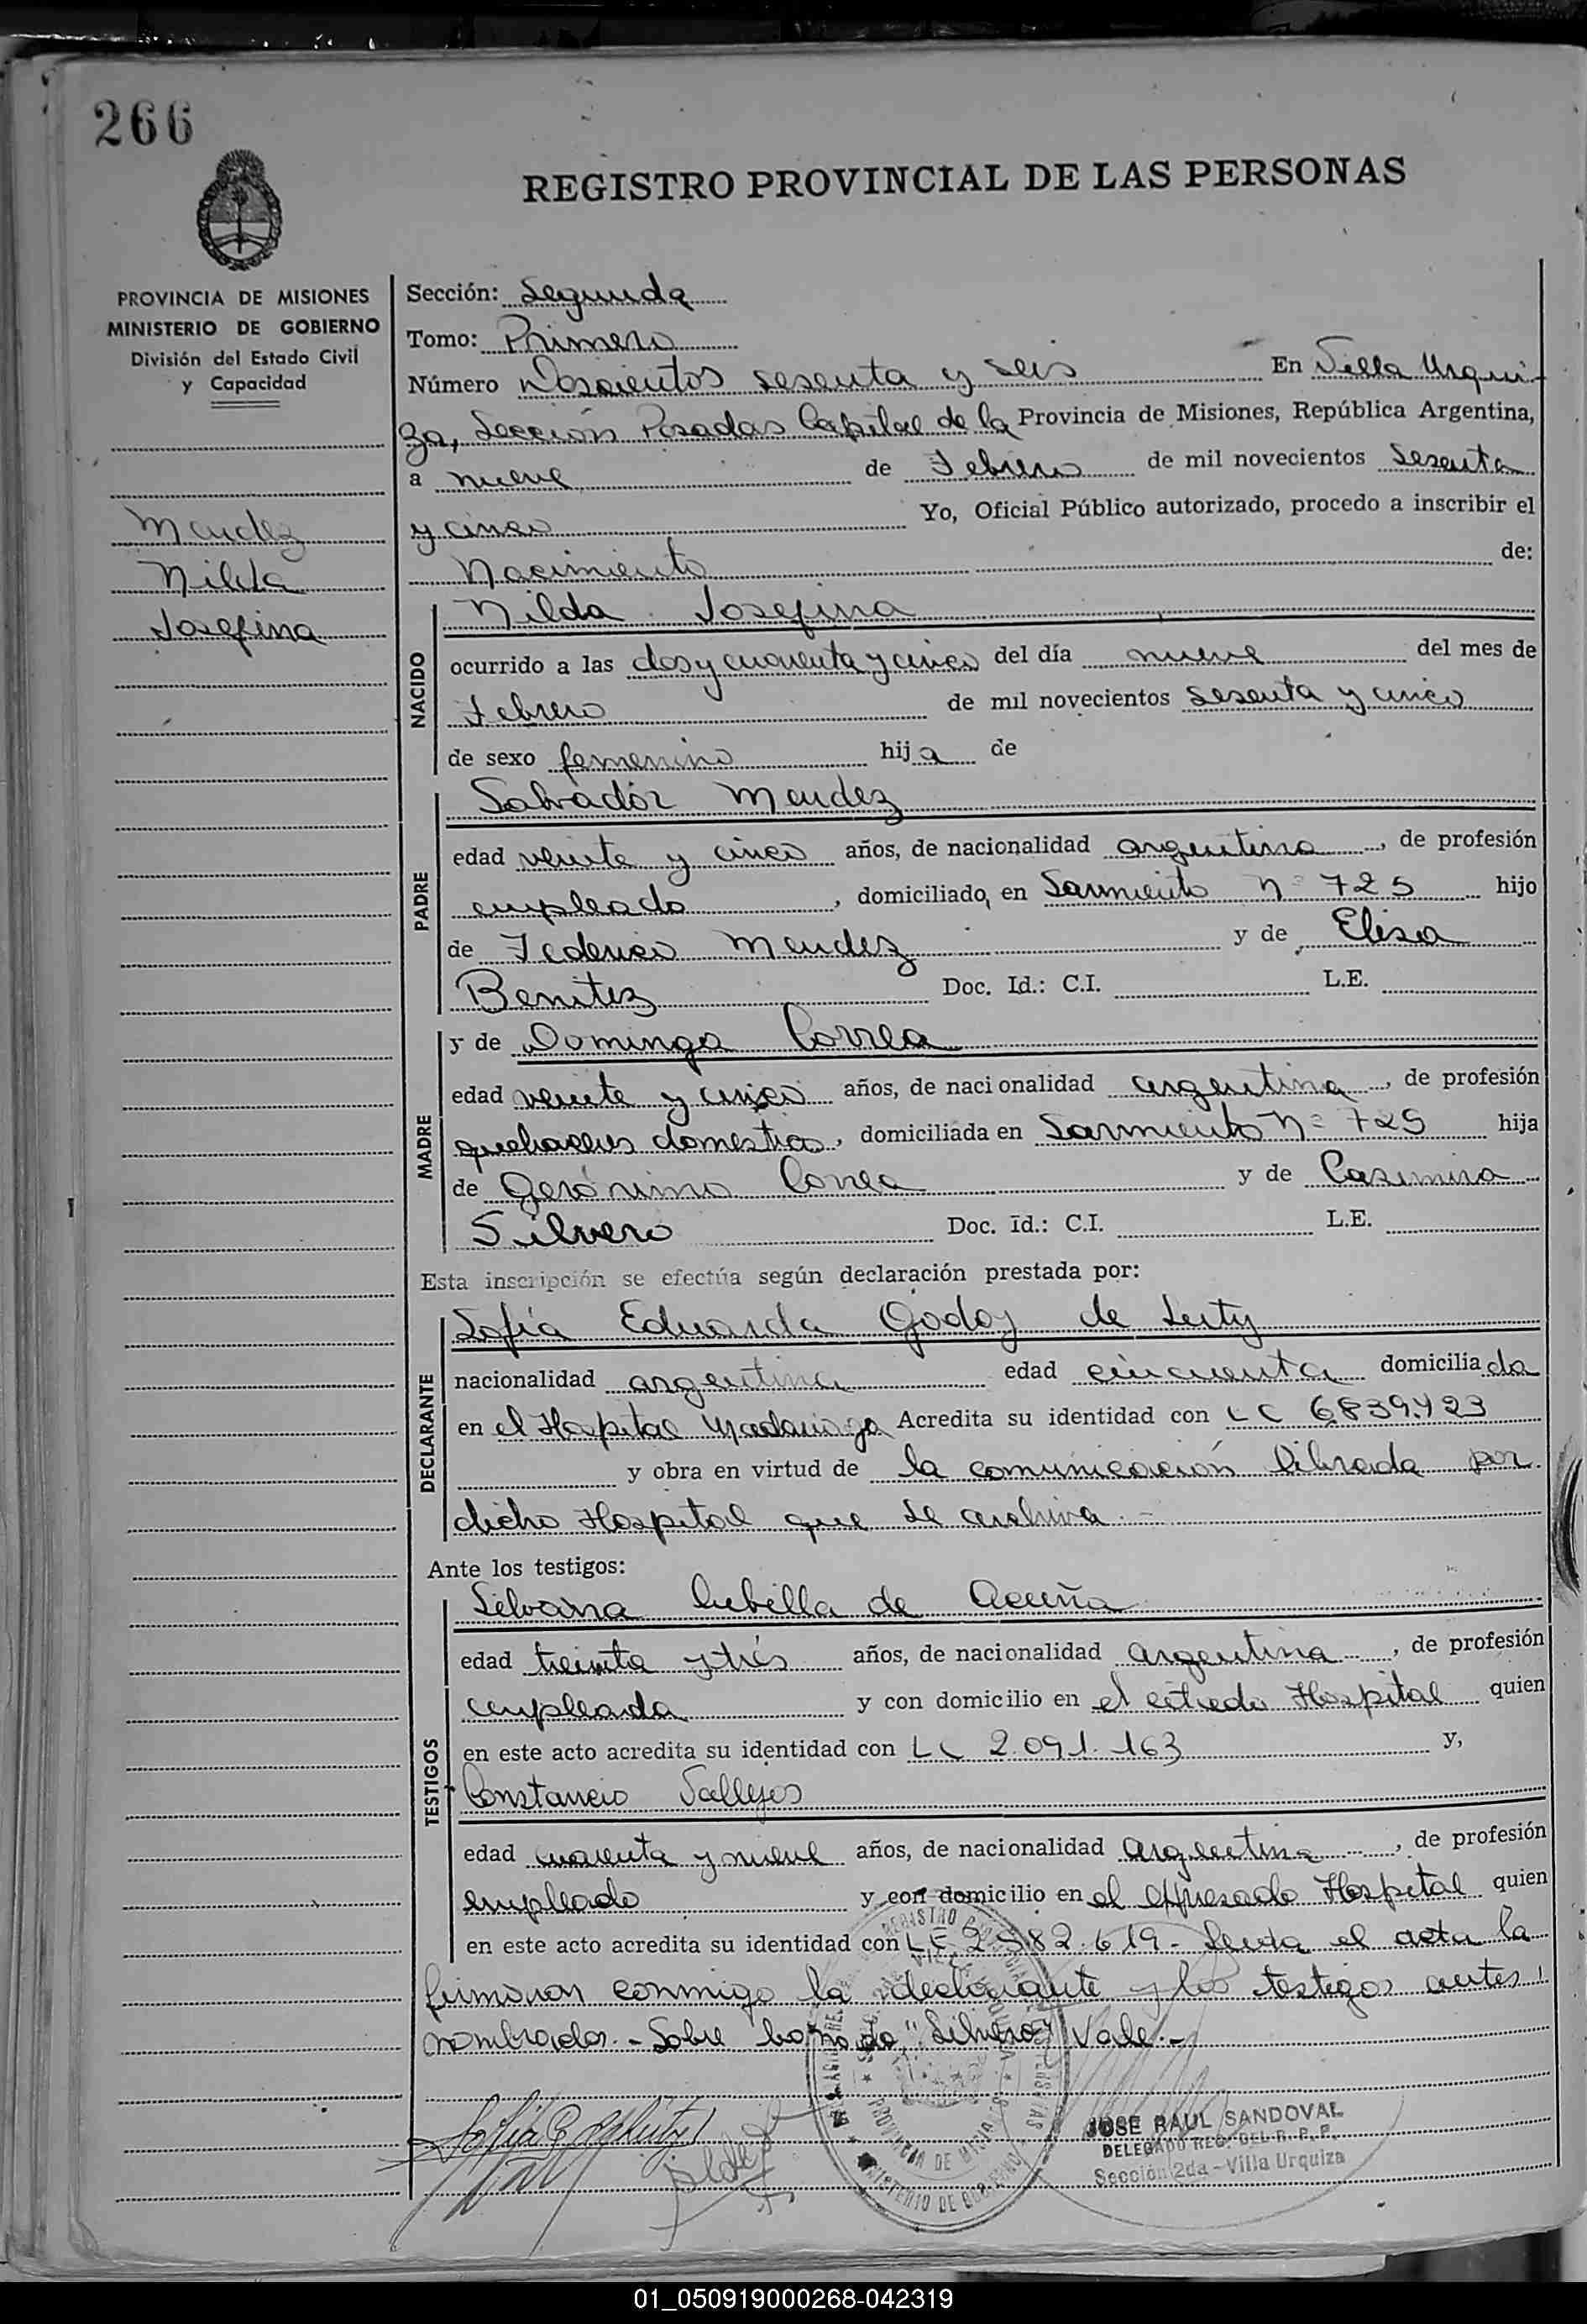 266
REGISTRO PROVINCIAL DE LAS PERSONAS
PROVINCIA DE MISIONES
MINISTERIO DE GOBIERNO
División del Estado Civil
y Capacidad
Mendez
Nilda
Josefina
Sección: Segunda
Tomo: Primero
Número Doscientos sesenta y seis En Villa Urqui-
za, Sección Posadas Capital de la Provincia de Misiones, República Argentina,
a nueve de Febrero de mil novecientos Sesenta
y cinco Yo, Oficial Público autorizado, procedo a inscribir el
Nacimiento de:
NACIDO
Nilda Josefina
ocurrido a las dos y cuarenta y cinco del día nueve del mes de
Febrero de mil novecientos sesenta y cinco
de sexo femenino hija de
PADRE
Salvador Mendez
edad veinte y cinco años, de nacionalidad argentina, de profesión
empleado, domiciliado, en Sarmiento Nº 725 hijo
de Federico Mendez y de Elisa
Benitez Doc. Id.: C.I. L.E.
MADRE
y de Dominga Correa
edad veinte y cinco años, de nacionalidad argentina, de profesión
quehaceres domesticos, domiciliada en Sarmiento Nº 725 hija
de Gerónimo Correa y de Casimira
Silvero Doc. Id.: C.I. L.E.
Esta inscripción se efectúa según declaración prestada por:
DECLARANTE
Sofía Eduarda Godoy de
nacionalidad argentina edad cincuenta domiciliada
en el Hospital Madariaga Acredita su identidad con LC 6.839.423
y obra en virtud de la comunicación librada por
dicho Hospital que se archiva.-
Ante los testigos:
TESTIGOS
Silvana Cubilla de Acuña
edad treinta y tres años, de nacionalidad argentina, de profesión
empleada y con domicilio en el citado Hospital quien
en este acto acredita su identidad con LC 2.091.163 y,
Constancio Vallejos
edad cuarenta y nueve años, de nacionalidad argentina, de profesión
empleado y con domicilio en el expresado Hospital quien
en este acto acredita su identidad con LE 2582.619- Leida el acta la
firmaron conmigo la declarante y los testigos antes
nombrados.- Sobre borrado "Silvero" Vale.-
JOSE RAUL SANDOVAL
DELEGADO REG. DEL R. P. P.
Sección 2da - Villa Urquiza
01_050919000268-042319